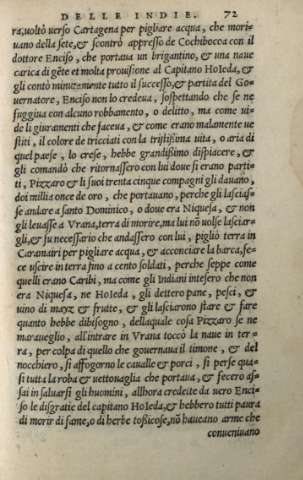 DELLE INDIE. 72
ra,uoltò uerso Cartagena per pigliare acqua, che mori-
uano della sete,& scontrò appresso de Cochibocoa con il
dottore Enciso, che portaua un brigantino, & una naue
carica di gẽte et molta prouisione al Capitano Hoieda, &
gli contò minutamente tutto il successo,& partita del Go-
uernatore, Enciso non lo credeua, sospettando che se ne
fuggiua con alcuno robbamento, o delitto, ma come ui-
de li giuramenti che faceua, & come erano malamente ue-
stiti, il colore de tricciati con la tristissima uita, o aria di
quel paese, lo crese, hebbe grandissimo dispiacere, &
gli comandò che ritornassero con lui doue si erano parti-
ti, Pizzaro & li suoi trenta cinque compagni gli dauano,
doi milia once de oro, che portauano, perche gli lascias-
se andare a santo Dominico, o doue era Niquesa, & non
gli leuasse a Vrana, terra di morire,ma lui nõ uolse lasciar-
gli,& fu necessario che andassero con lui, pigliò terra in
Caramairi per pigliare acqua, & acconciare la barca, fe-
ce uscire in terra fino a cento soldati, perche seppe come
quelli erano Caribi, ma come gli Indiani intesero che non
era Niquesa, ne Hoieda, gli dettero pane, pesci, &
uino di mayz & frutte, & gli lasciarono stare & fare
quanto hebbe dibisogno, dellaquale cosa Pizzaro se ne
marauegliò, all'intrare in Vrana toccò la naue in ter-
ra, per colpa di quello che gouernaua il timone, & del
nocchiero, si affogorno le caualle & porci, si perse qua-
si tutta la roba & uettouaglia che portaua, & fecero as-
sai in saluarsi gli huomini, allhora credette da uero Enci-
so le disgratie del capitano Hoieda,& hebbero tutti paura
di morir di fame,o di herbe tossicose,nõ haueano arme che
conueniuano